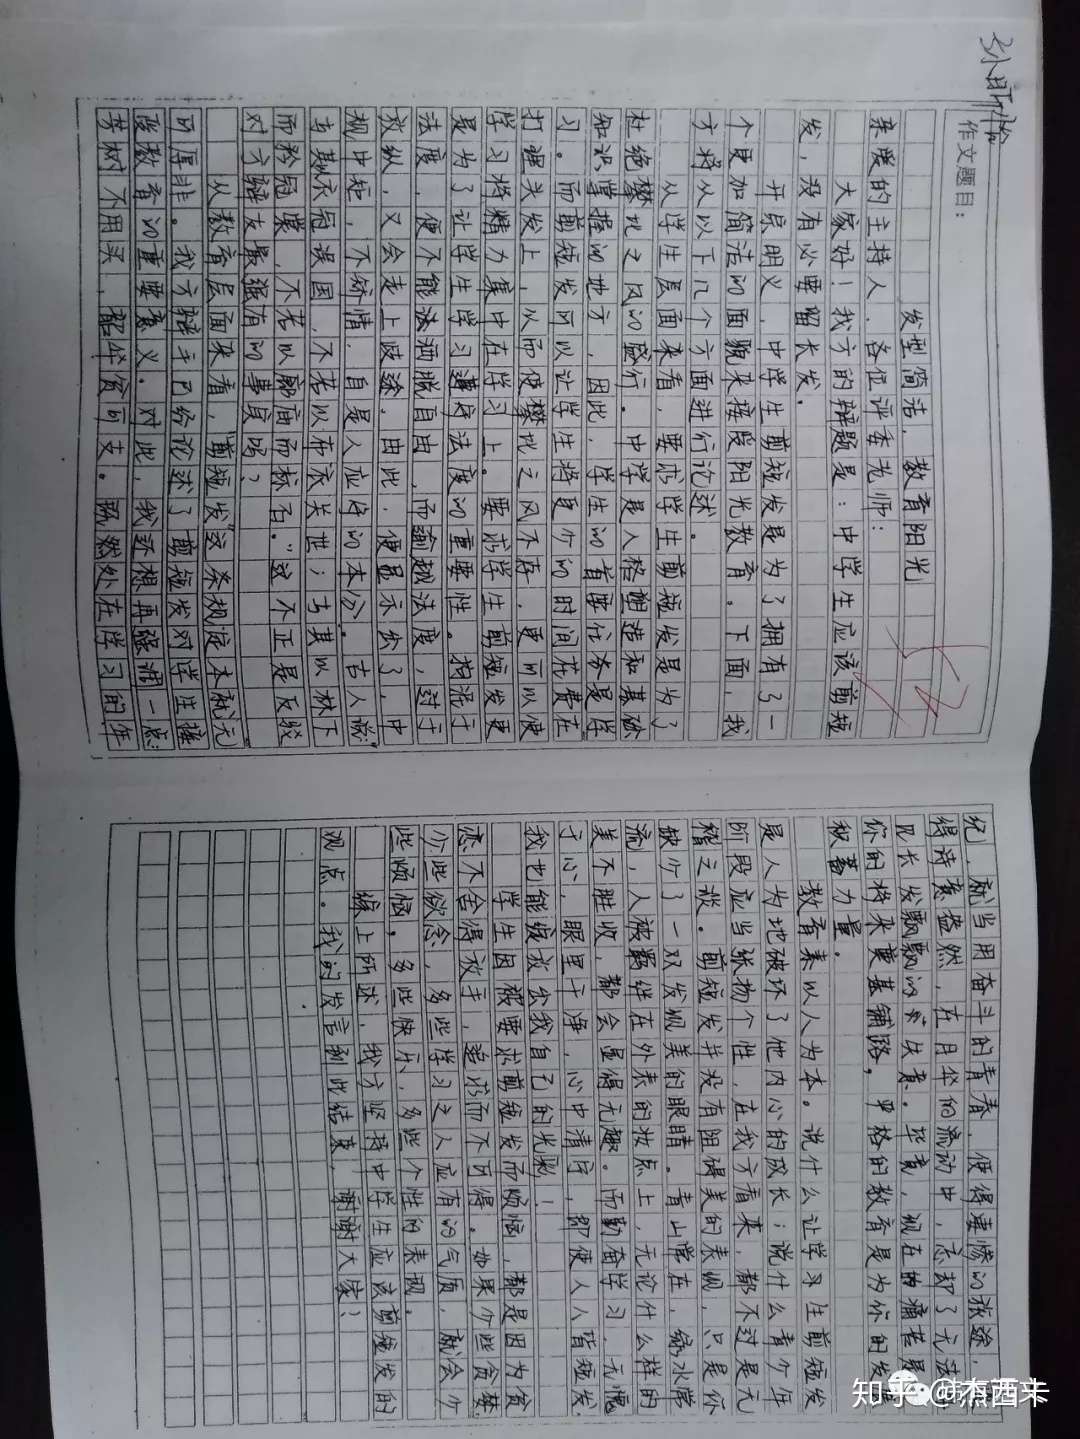 作文题目：
发型简洁，教育阳光
亲爱的主持人、各位评委老师：
大家好！我方的辩题是：中学生应该剪短
发，没有必要留长发。
开宗明义，中学生剪短发是为了拥有了一
个更加简洁的面貌来接受阳光教育。下面，我
方将从以下几个方面进行论述。
从学生层面来看，要求学生剪短发是为了
杜绝攀比之风的盛行。中学是人格塑造和基础
知识掌握的地方，因此，学生的首要任务是学
习。而剪短发可以让学生将更少的时间花费在
打理头发上，从而使攀比之风不再，更可以使
学习将精力集中在学习上。要求学生剪短发更
是为了让学生学习遵守法度的重要性。拘泥于
法度，便不能法洒脱自由，而逾越法度，过于
放纵，又会走上歧途。由此，便显示出了，中
规中矩，不矫情，自是人应当的本分。古人说"
与其以衣冠误国，不若以布衣关世；与其以林下
而矜冠裳，不若以廊庙而标泉石。"这不正是反驳
对方辩友最强有的事实吗？
从教育层面来看，"剪短发"这条规定本就无
可厚非。我方辩手已给论述了剪短发对学生接
受教育的重要意义，对此，我还想再强调一点：
芳树不用买，韶华贫可支。既然处在学习的年
纪，就当用奋斗的青春，使得凄惨的旅途，
得诗意盎然，在月华的流动中，忘却了无法
见长发飘飘的失意。毕竟，现在的痛苦是
你的将来奠基铺路，严格的教育是为你的发
积蓄力量。
教育素以人为本。说什么让学习生剪短发
是人为地破坏了他内心的成长；说什么青少年
阶段应当张扬个性，在我方看来，都不过是无
稽之谈。剪短发并没有阻碍美的表现，只是你
缺少了一双发现美的眼睛。青山常在，绿水常
流，人被羁绊在外表的妆点上，无论什么样的
美不胜收，都会显得无趣。而勤奋学习，无愧
于心，眼里干净，心中清宁，即使人人皆短发，
我也能绽放出我自己的光彩！
学生因被要求剪短发而烦恼，都是因为贪
恋不舍得放手，追求而不可得。如果少些贪婪，
少些欲念，多些学习之人应有的气质，就会少
些烦恼，多些快乐，多些个性的表现。
综上所述，我方坚持中学生应该剪短发的
观点。我的发言到此结束，谢谢大家！
知乎 @杰西卡